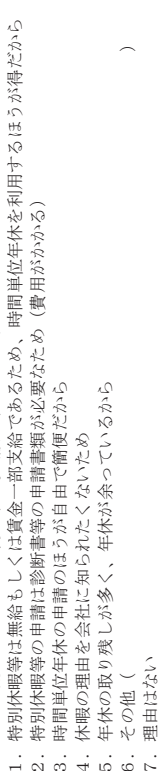 1．特別休暇等は無給もしくは賃金一部支給であるため、時間単位年休を利用するほうが得だから
2．特別休暇等の申請は診断書等の申請書類が必要なため（費用がかかる）
3．時間単位年休の申請のほうが自由で簡便だから
4．休暇の理由を会社に知られたくないため
5．年休の取り残しが多く、年休が余っているから
6．その他（　　　　　　　　　　　　　　　　　　　　）
7．理由はない